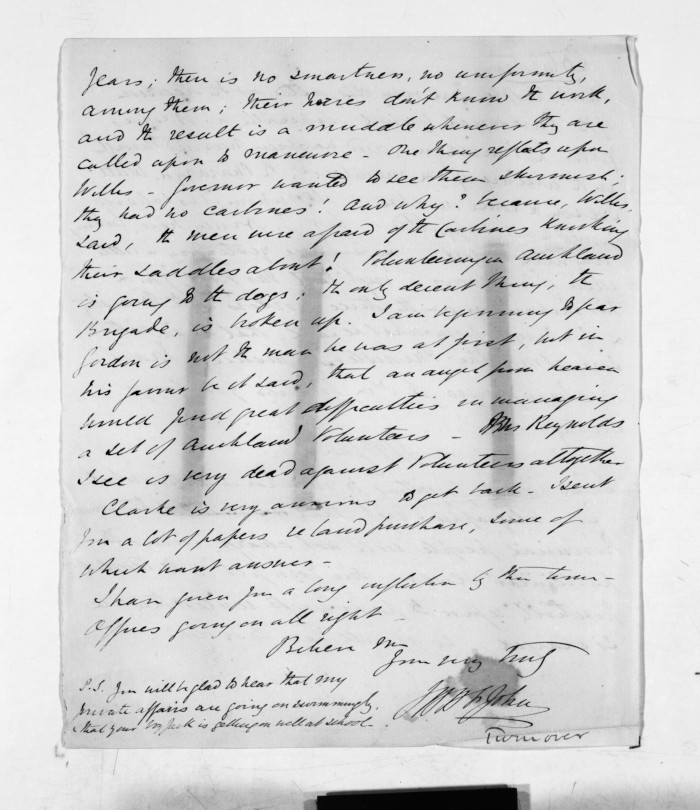 years; there is no smartness, no uniformity,
among them; their horses don't know the work,
and the result is a muddle whenever they are
called upon to manoeuvre - One thing reflects upon
Wills - Governor wanted to see them skirmish;
they had no carbines! And why? because, Wills
said, the men were afraid of the Carbines knocking
their saddles about! Volunteering in Auckland
is going to the dogs; the only decent thing, the
Brigade, is broken up. I am beginning to fear
Gordon is not the man he was at first, but in
his favour be it said, that an angel from heaven
would find great difficulties in managing
a set of Auckland Volunteers - Reynolds
I see is very dead against Volunteers altogether
Clarke is very anxious to get back - I sent
you a lot of papers re land purchase, some of
which want answer -
I have given you a long infliction by this time -
Offices going on all right -
Believe me
Yours very truly
St John
P.S. You will be glad to hear that my
private affairs are going on swimmingly,
that your Jack is getting on well at school -
Turn over